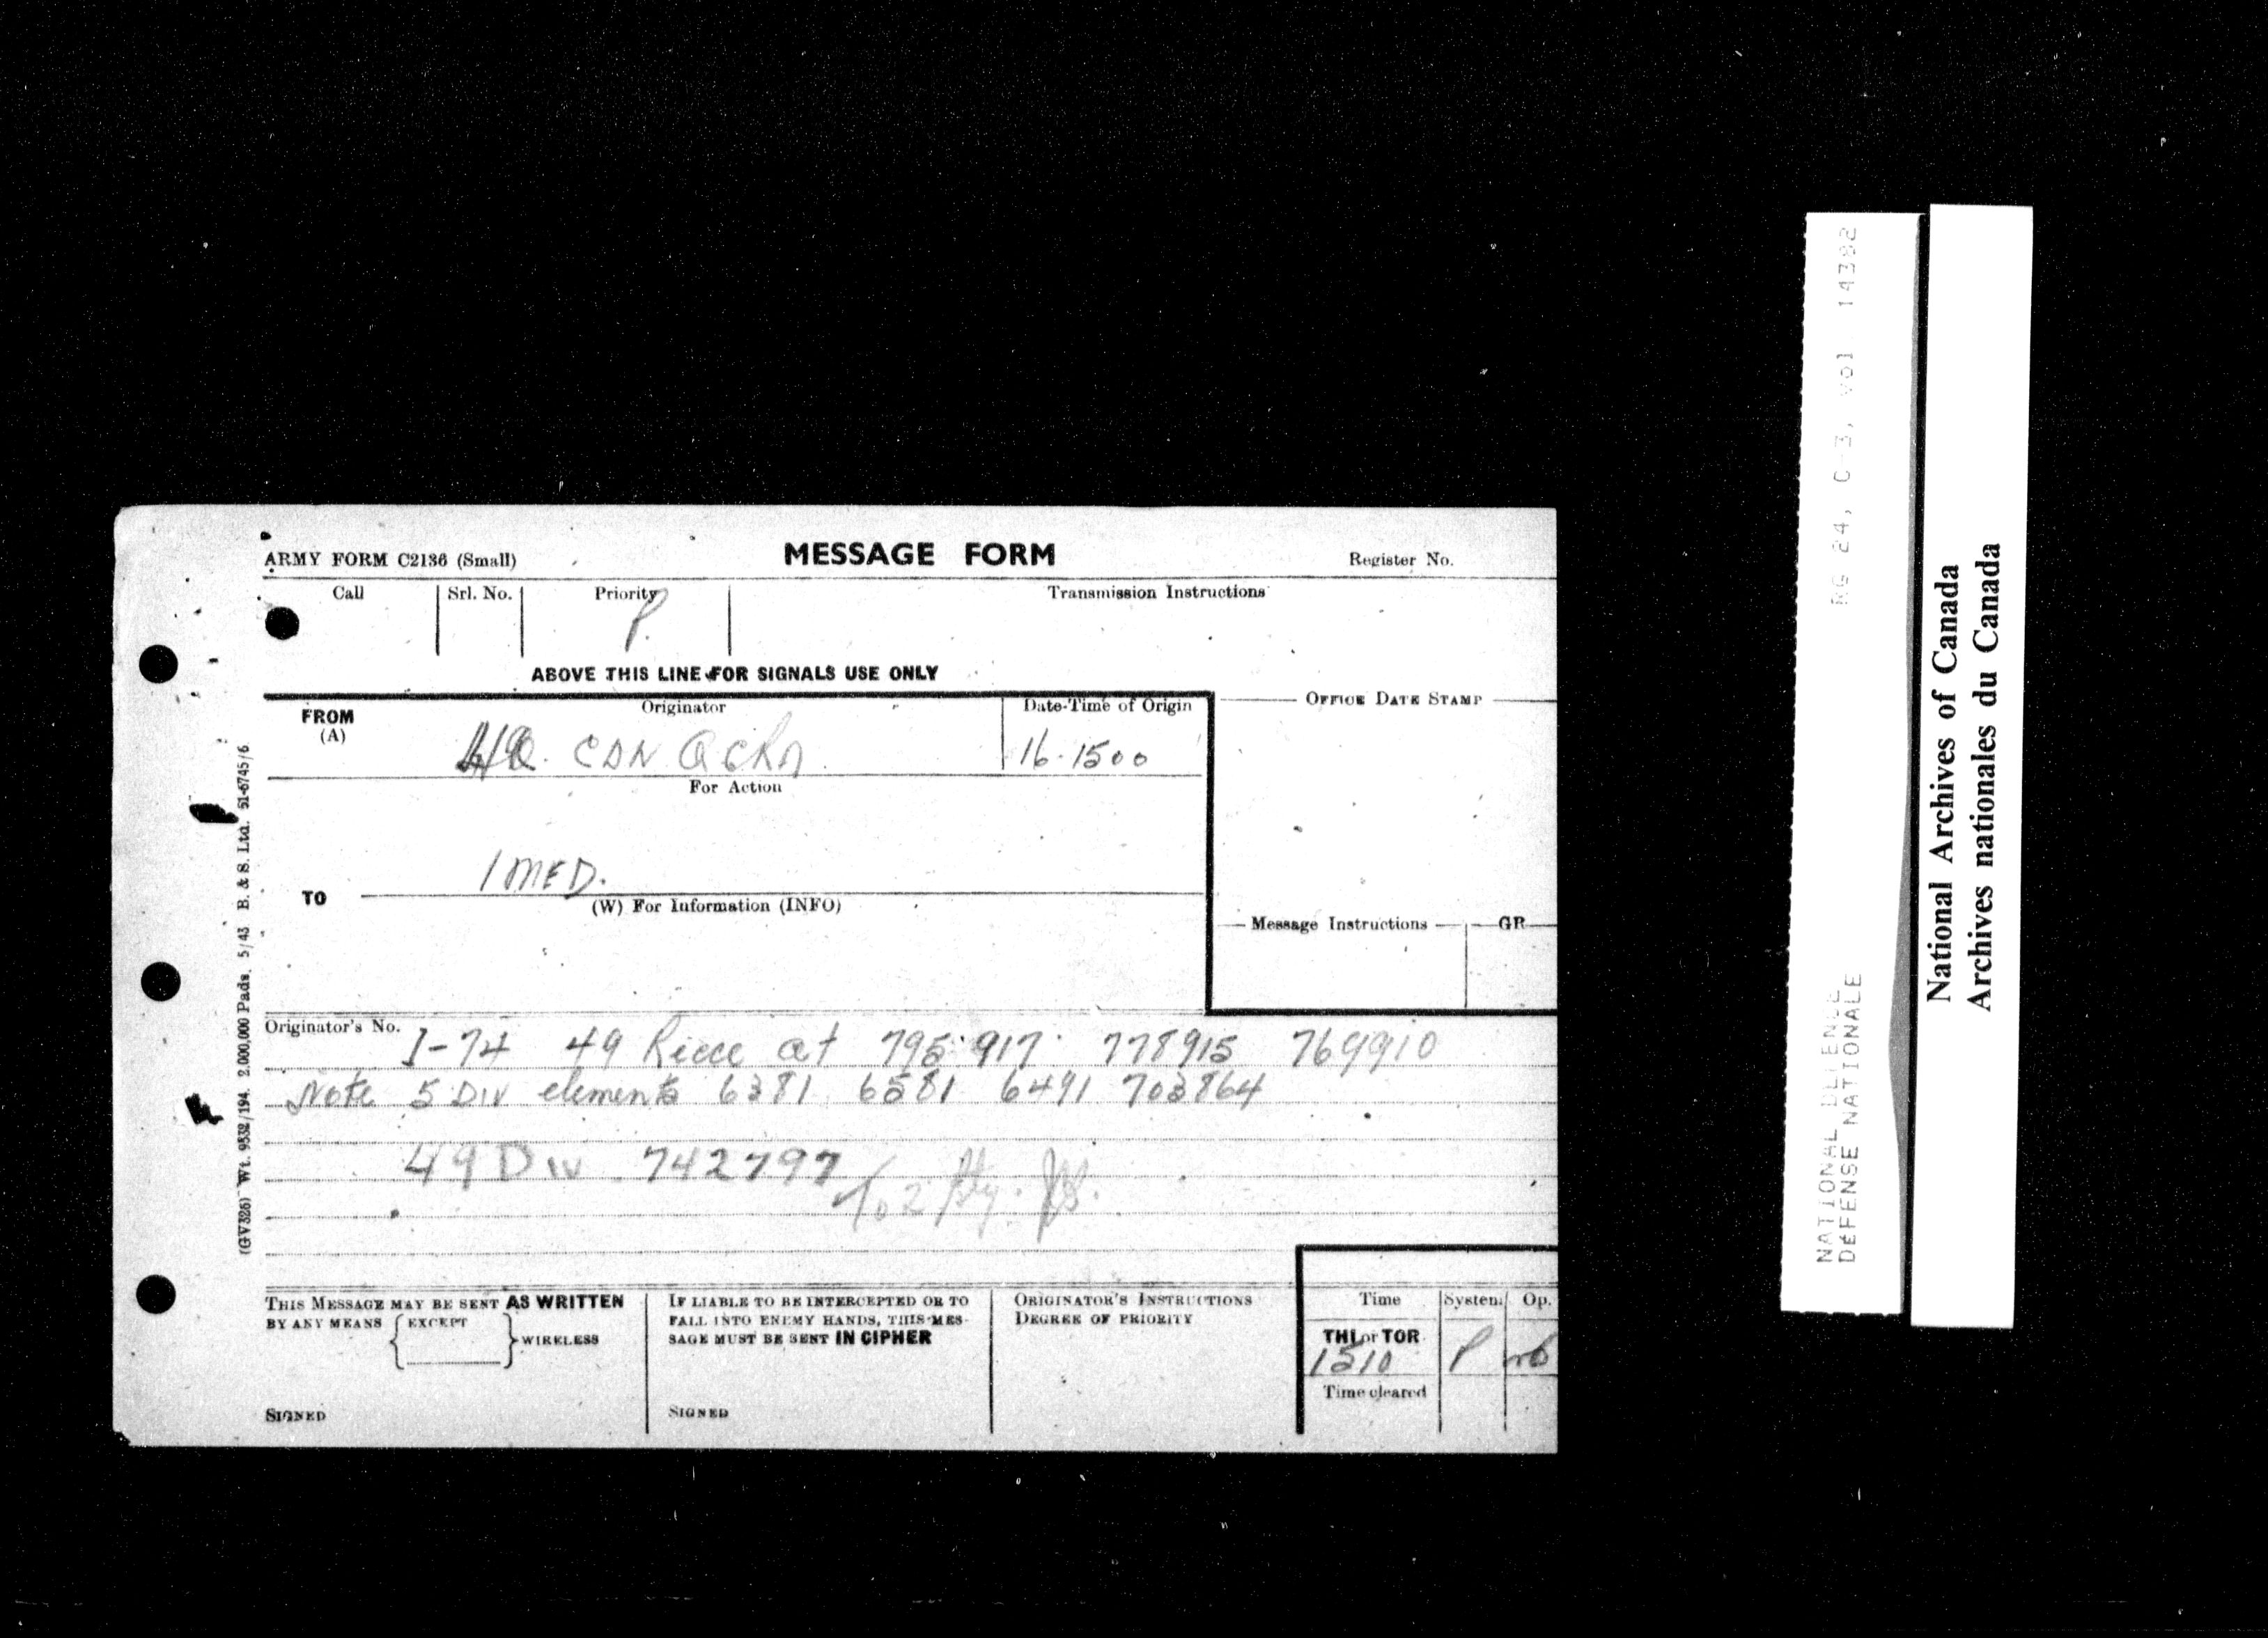 ARMY FORM C2136 (Small) MESSAGE FORM Register No.
Call Srl. No. Priority Transmission Instructions
P.
ABOVE THIS LINE FOR SIGNALS USE ONLY
FROM (A) Originator Date-Time of Origin OFFICE DATE STAMP
HQ. CDN AGRA 16-1500
For Action
1 MED.
TO
(W) For Information (INFO)
Message Instructions GR
Originator's No.
I-74 49 Recce at 795917 778915 769910
Note 5 Div elements 6381 6581 6491 703864
49 Div 742797
To 2 Bty.
THIS MESSAGE MAY BE SENT AS WRITTEN
BY ANY MEANS EXCEPT WIRELESS
SIGNED
IF LIABLE TO BE INTERCEPTED OR TO
FALL INTO ENEMY HANDS, THIS MES-
SAGE MUST BE SENT IN CIPHER
SIGNED
ORIGINATOR'S INSTRUCTIONS
DEGREE OF PRIORITY
Time System Op.
THI or TOR
1510 P
Time cleared
(GV326) Wt. 9532/194. 2,000,000 Pads. 5/43 B. & S. Ltd. 51-6745/6
RG 24, C-3, vol 14382
NATIONAL DEFENCE
DEFENSE NATIONALE
National Archives of Canada
Archives nationales du Canada